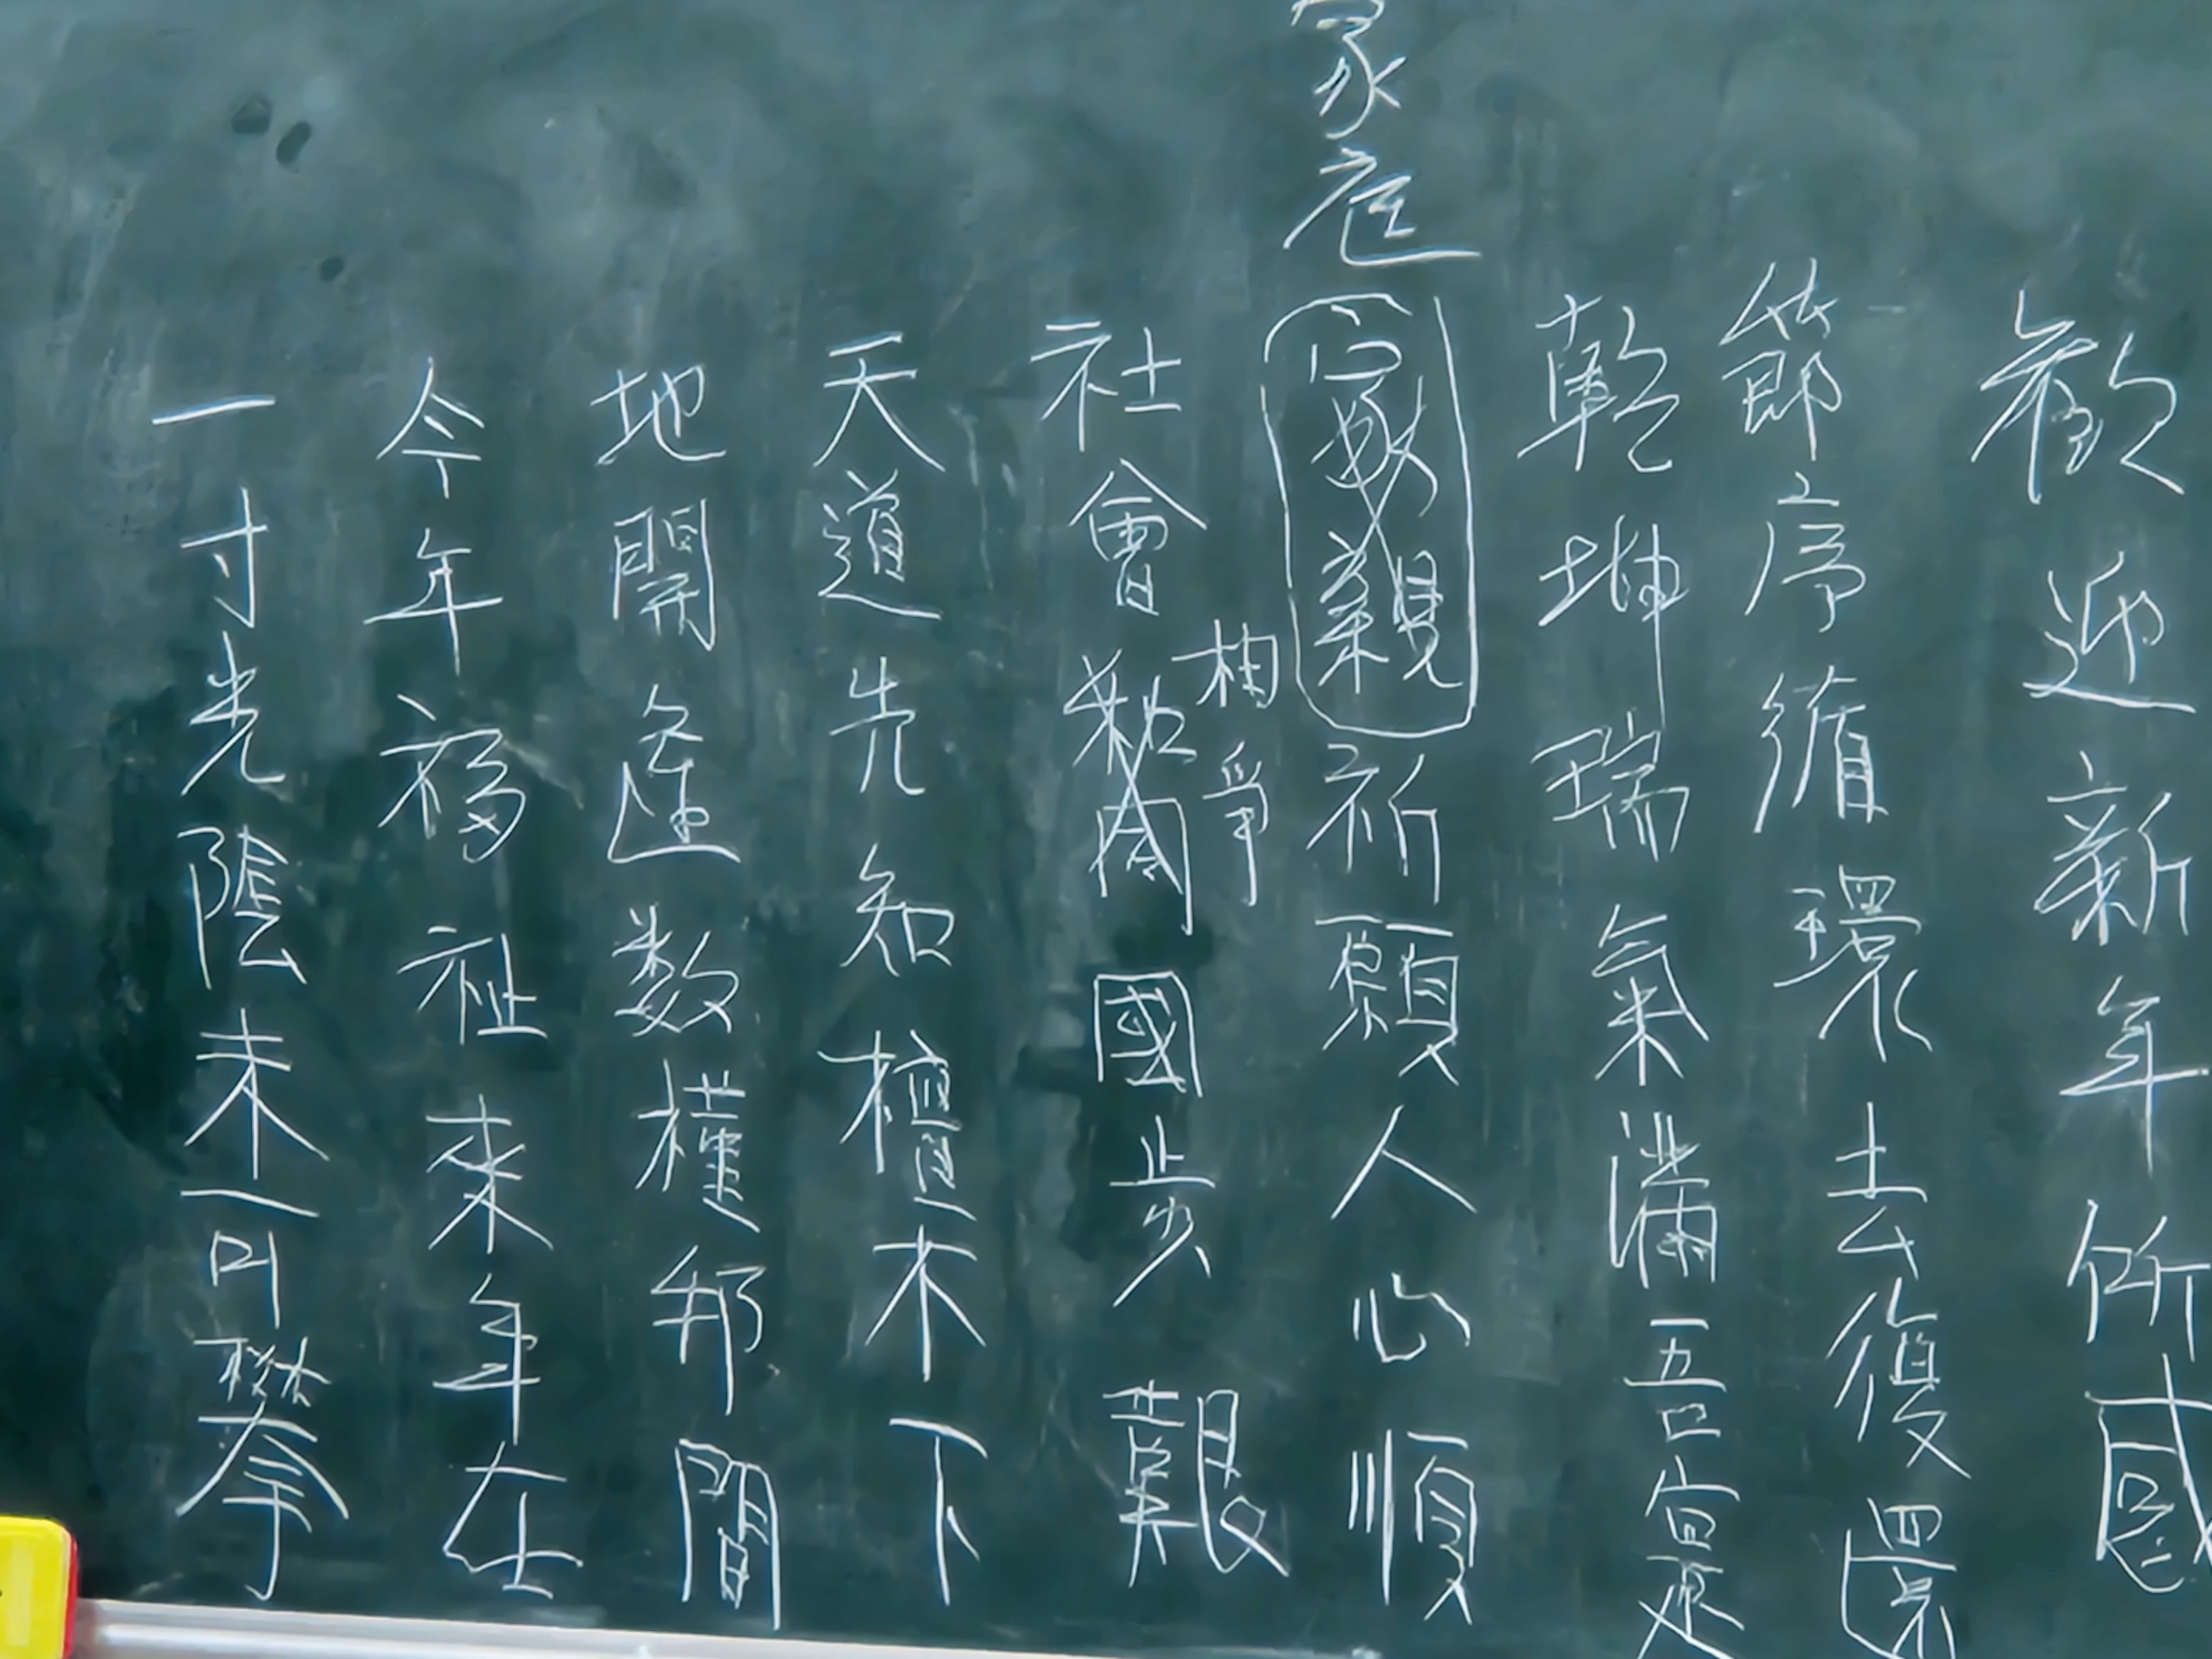 歡迎新年所感
節序循環去復還
乾坤瑞氣滿吾寰
家庭祈願人心順
家親
社會相爭國步艱
黨鬪
天道先知檀木下
地開進數槿邦間
今年福祉來年在
一寸光陰未可攀